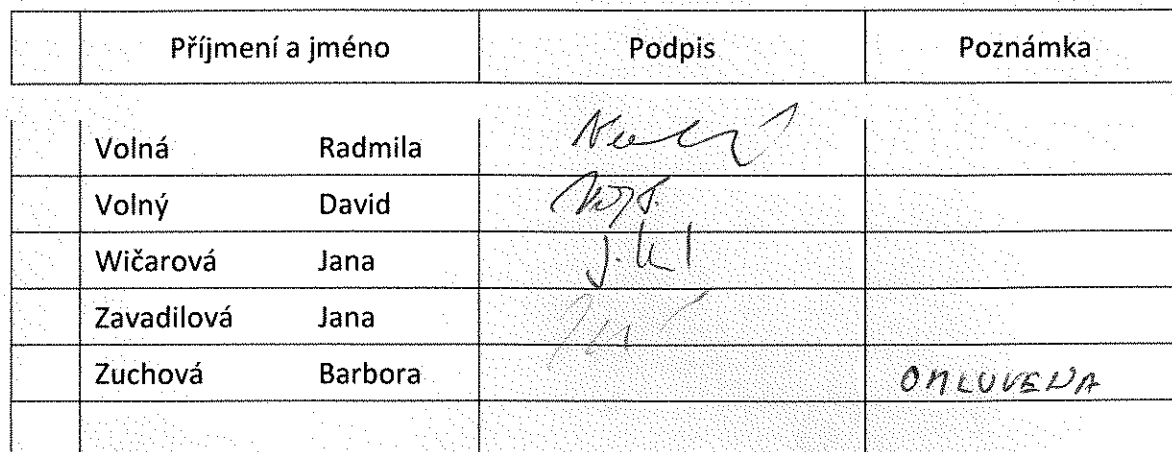 Příjmení a jméno Podpis Poznámka
Volná Radmila
Volný David
Wičarová Jana
Zavadilová Jana
Zuchová Barbora OMLUVENA